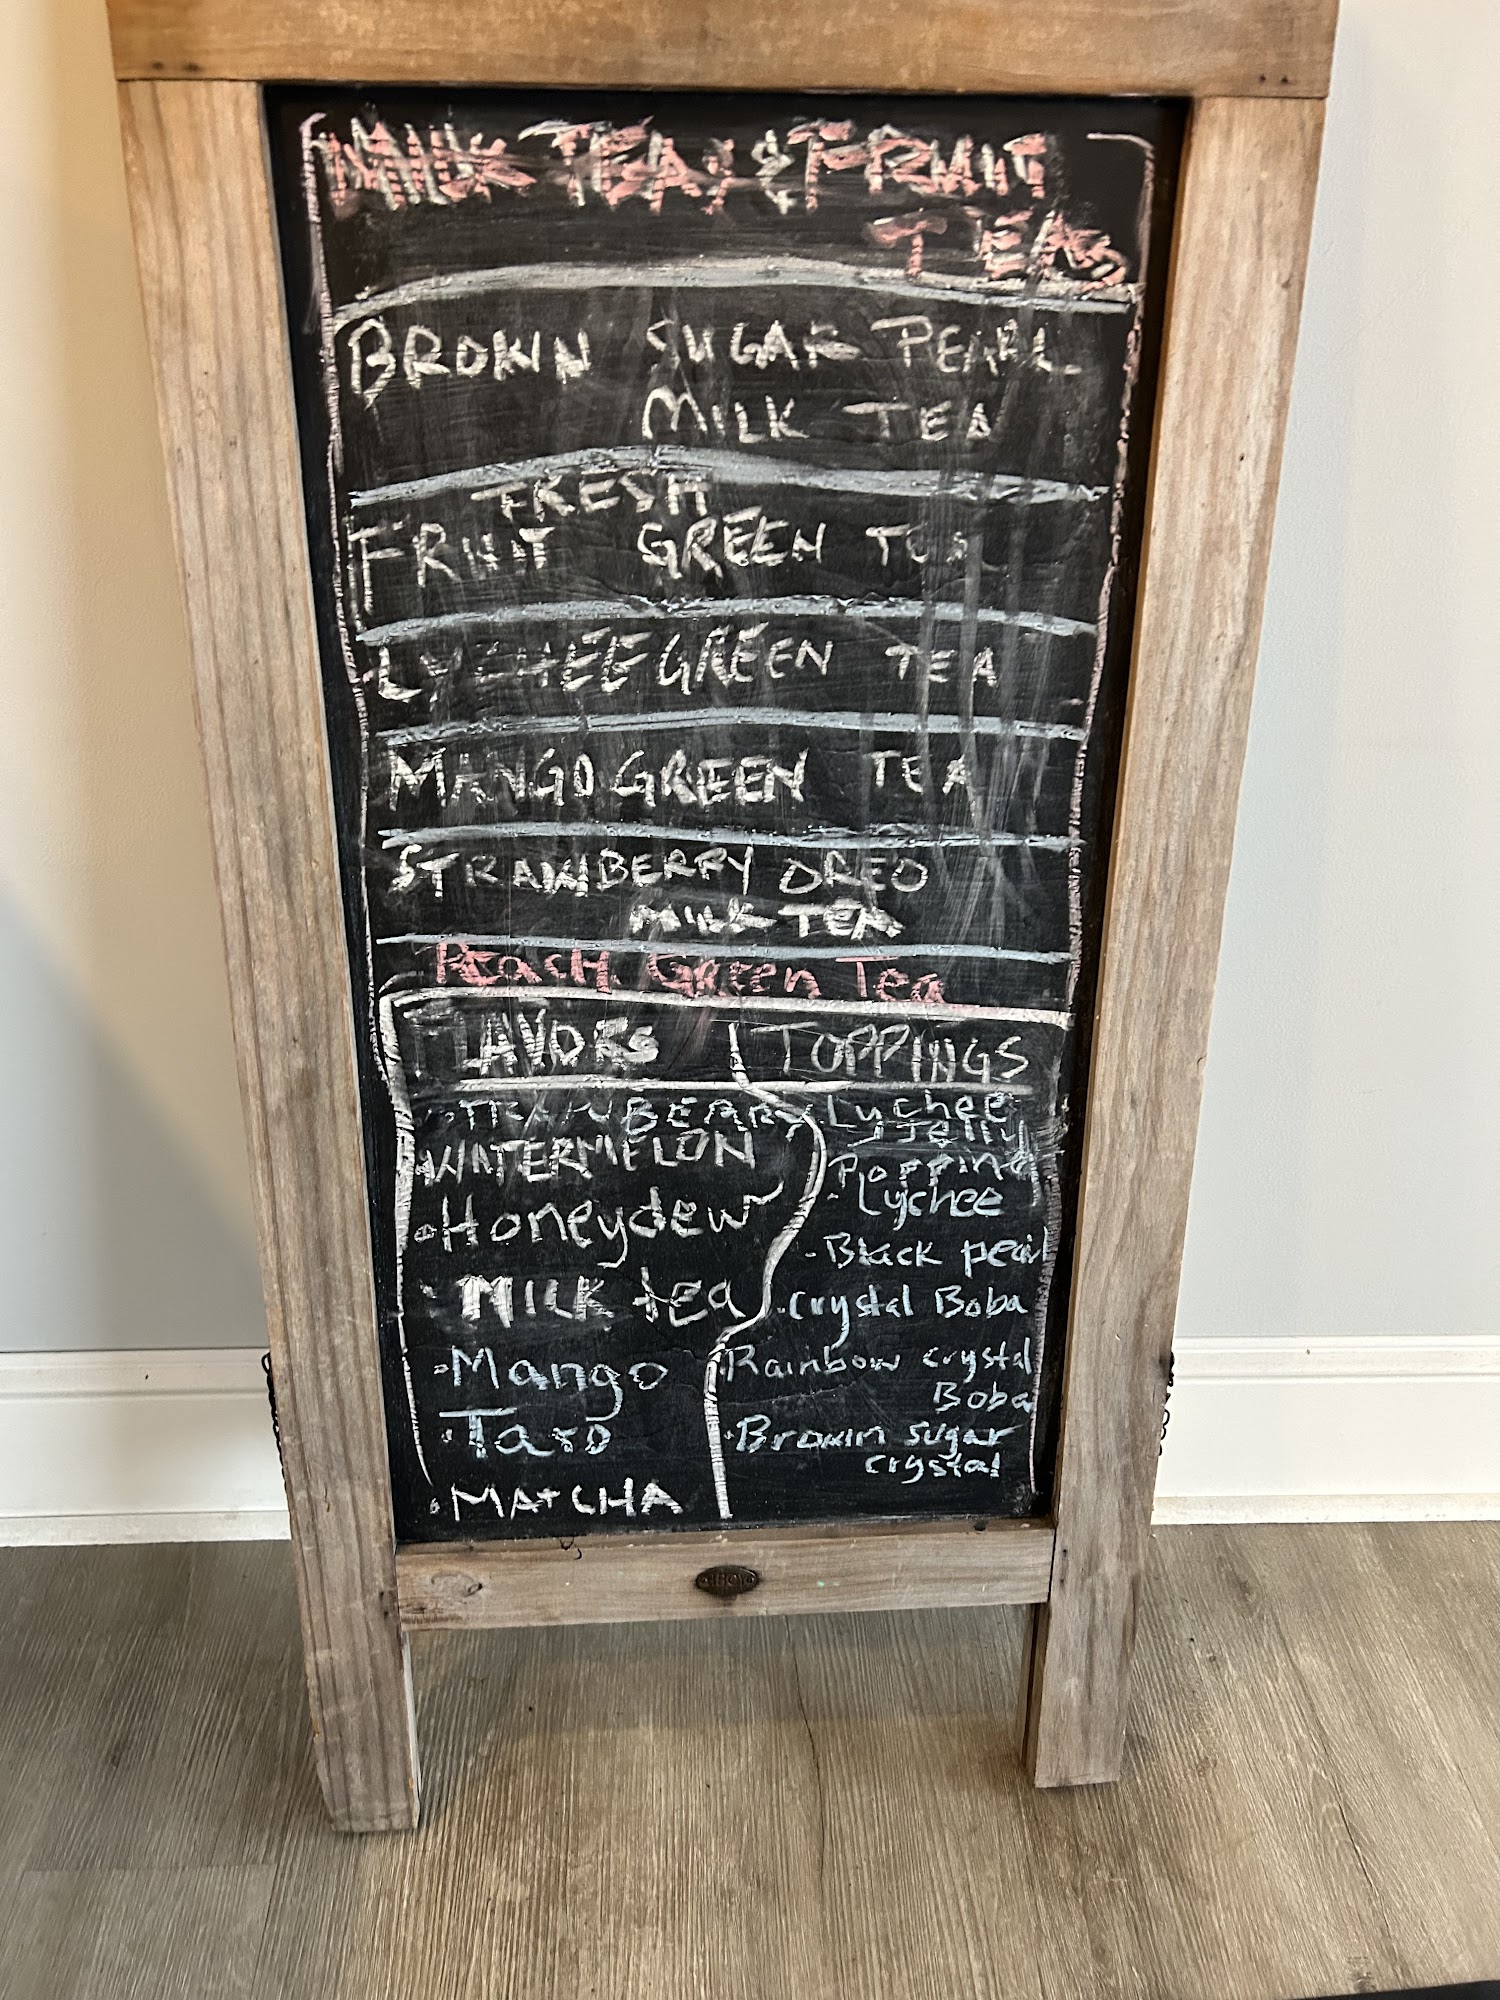 MILK TEAS & FRUIT
TEAS
BROWN SUGAR PEARL
MILK TEA
FRESH
FRUIT GREEN TEA
LYCHEE GREEN TEA
MANGO GREEN TEA
STRAWBERRY OREO
MILK TEA
Peach Green Tea
FLAVORS
STRAWBERRY
WATERMELON
Honeydew
MILK tea
Mango
Taro
MATCHA
TOPPINGS
Lychee
Jelly
Popping
Lychee
Black pearl
Crystal Boba
Rainbow crystal
Boba
Brown sugar
crystal